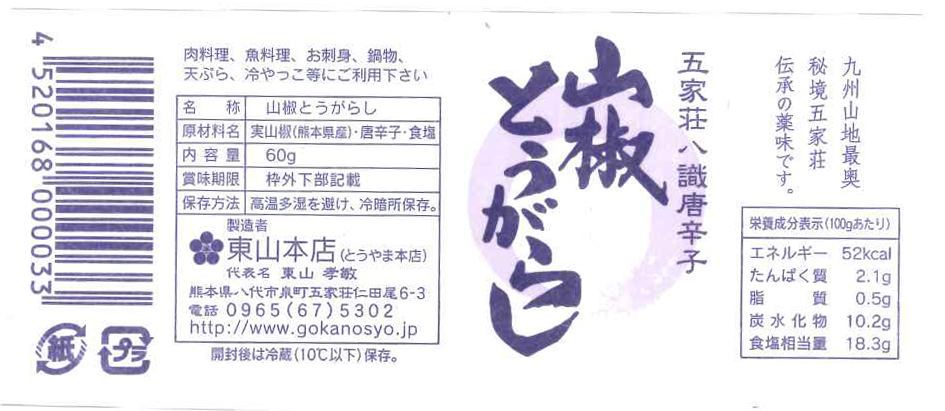 九州山地最奥
秘境五家荘
伝承の薬味です。
五家荘八識唐辛子
山椒
とうがらし
栄養成分表示(100gあたり)
エネルギー 52kcal
たんぱく質 2.1g
脂 質 0.5g
炭水化物 10.2g
食塩相当量 18.3g
肉料理、魚料理、お刺身、鍋物、
天ぷら、冷やっこ等にご利用下さい
名 称 山椒とうがらし
原材料名 実山椒(熊本県産)・唐辛子・食塩
内容量 60g
賞味期限 枠外下部記載
保存方法 高温多湿を避け、冷暗所保存。
製造者
東山本店(とうやま本店)
代表名 東山 孝敏
熊本県八代市泉町五家荘仁田尾6-3
電話 0965(67)5302
http://www.gokanosyo.jp
開封後は冷蔵(10℃以下)保存。
4 520168 000033
紙
プラ